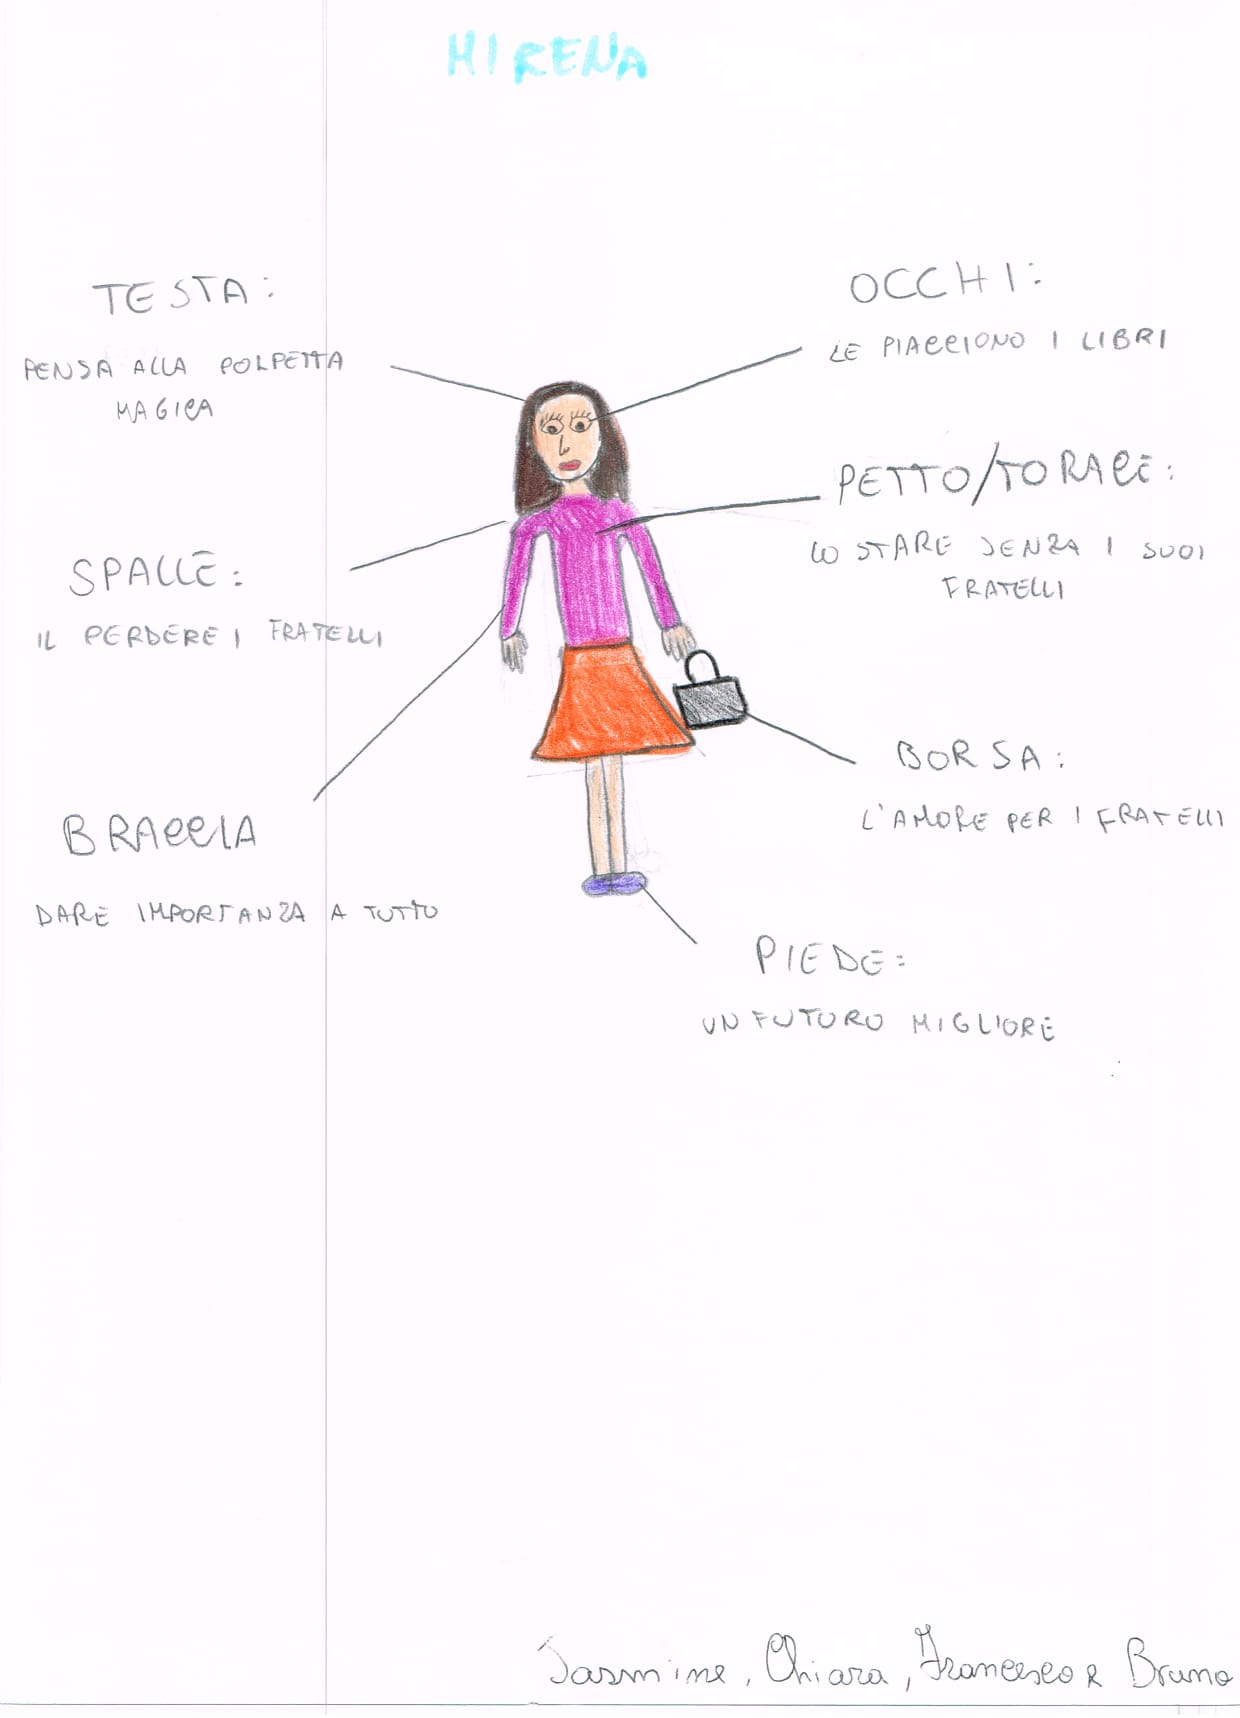 MIRENA
TESTA:
PENSA ALLA POLPETTA
MAGICA
OCCHI:
LE PIACCIONO I LIBRI
PETTO/TORACE:
LO STARE SENZA I SUOI
FRATELLI
SPALLE:
IL PERDERE I FRATELLI
BORSA:
L'AMORE PER I FRATELLI
BRACCIA
DARE IMPORTANZA A TUTTO
PIEDE:
UN FUTURO MIGLIORE
Jasmine, Chiara, Francesco e Bruno